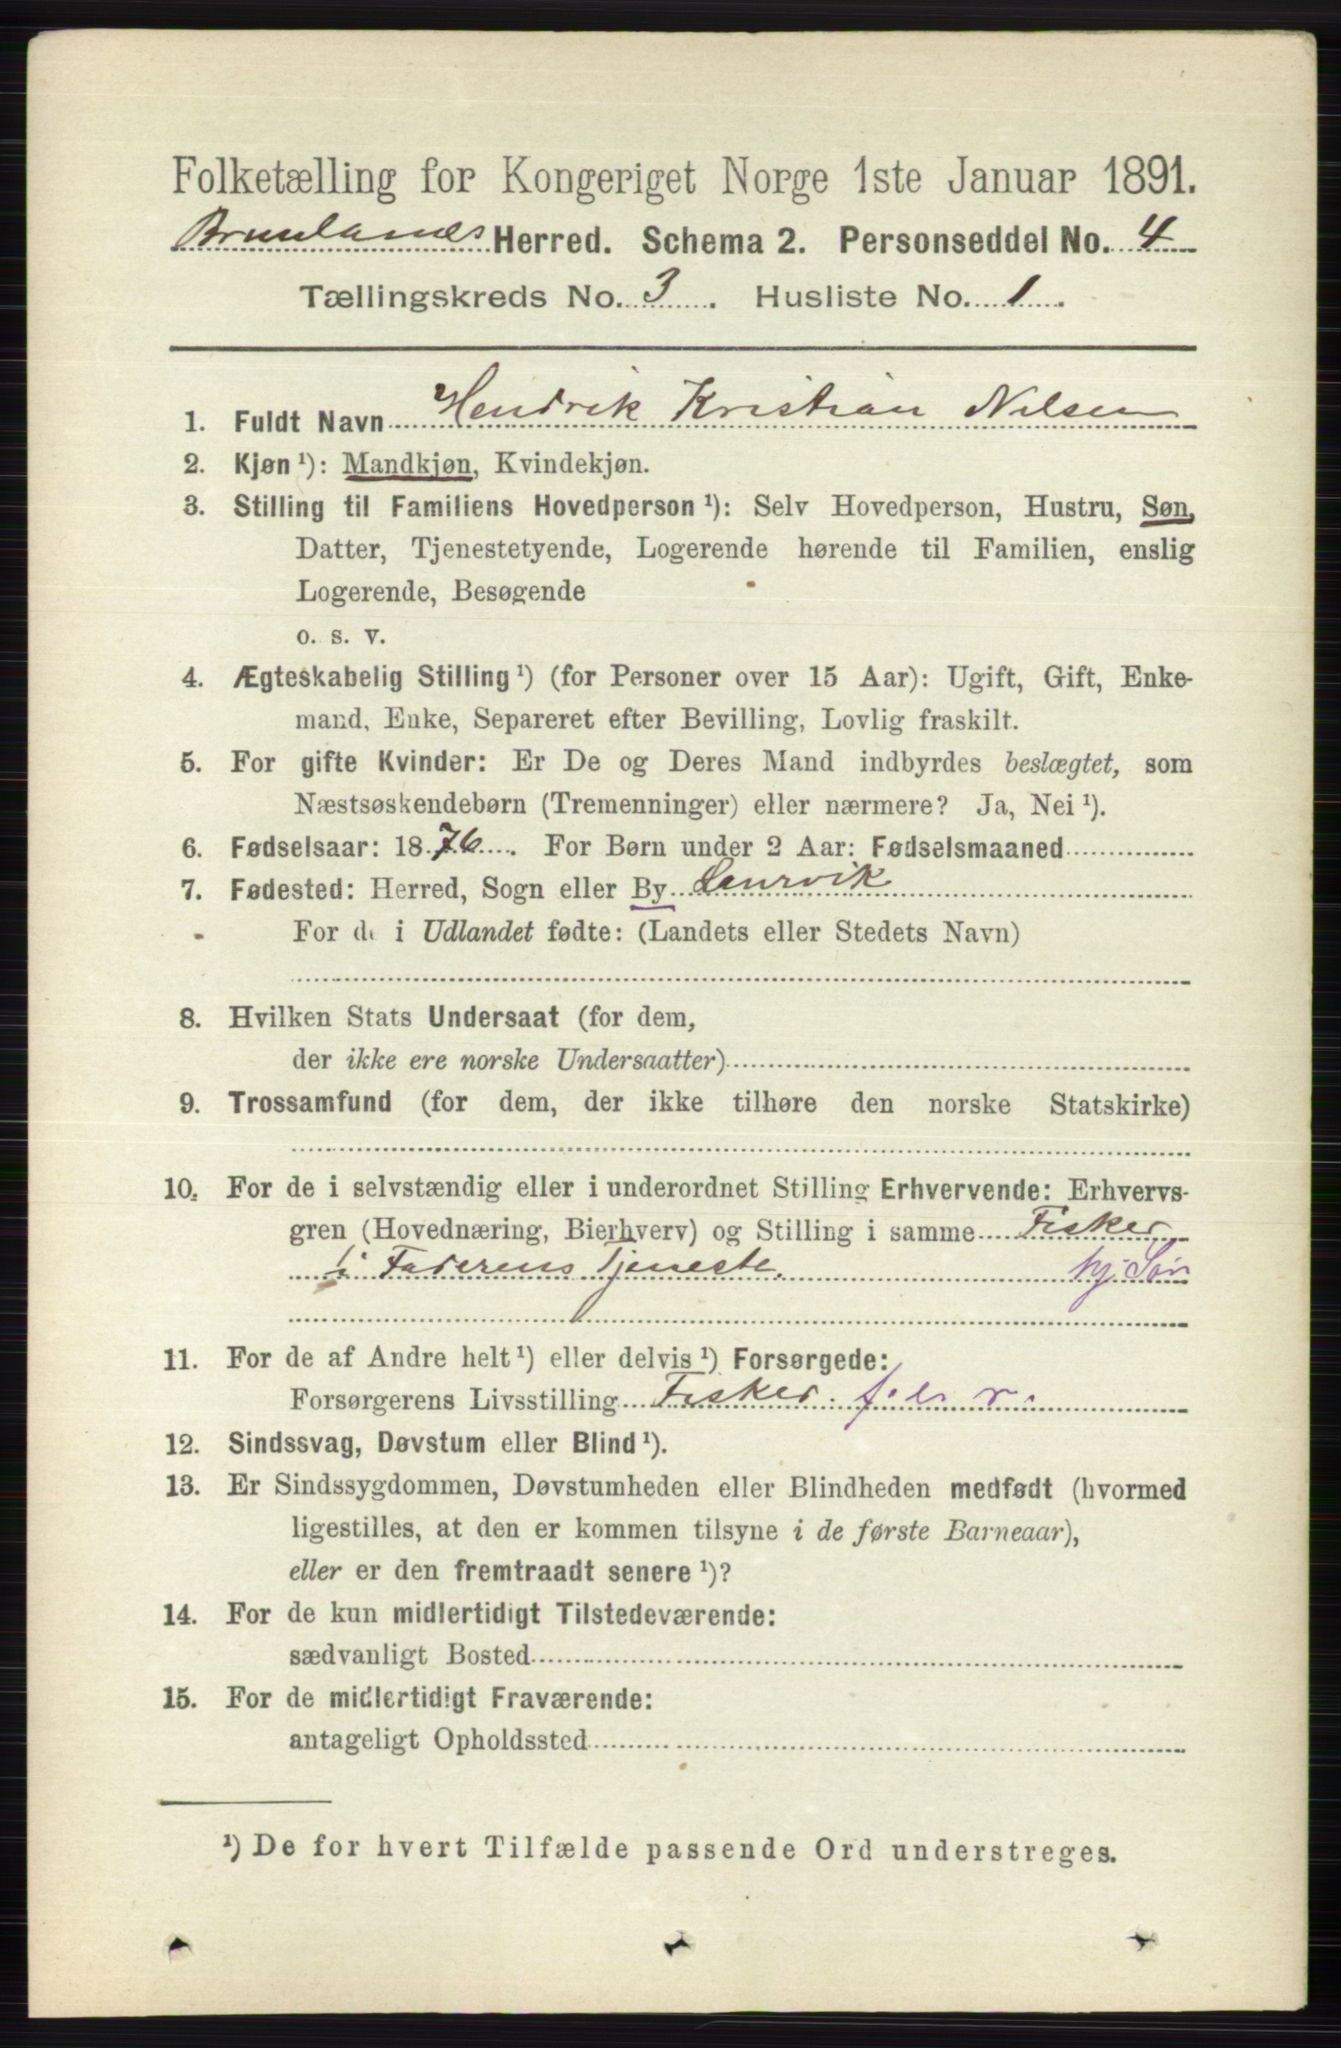 Folketælling for Kongeriget Norge 1ste Januar 1891.
Brunlanes Herred. Schema 2. Personseddel No. 4
Tællingskreds No. 3. Husliste No. 1.
1. Fuldt Navn Hendrik Kristian Nilsen
2. Kjøn ¹): Mandkjøn, Kvindekjøn.
3. Stilling til Familiens Hovedperson ¹): Selv Hovedperson, Hustru, Søn,
Datter, Tjenestetyende, Logerende hørende til Familien, enslig
Logerende, Besøgende
o. s. v.
4. Ægteskabelig Stilling ¹) (for Personer over 15 Aar): Ugift, Gift, Enke-
mand, Enke, Separeret efter Bevilling, Lovlig fraskilt.
5. For gifte Kvinder: Er De og Deres Mand indbyrdes beslægtet, som
Næstsøskendebørn (Tremenninger) eller nærmere? Ja, Nei ¹).
6. Fødselsaar: 1876. For Børn under 2 Aar: Fødselsmaaned
7. Fødested: Herred, Sogn eller By Laurvik
For de i Udlandet fødte: (Landets eller Stedets Navn)
8. Hvilken Stats Undersaat (for dem,
der ikke ere norske Undersaatter)
9. Trossamfund (for dem, der ikke tilhøre den norske Statskirke)
10. For de i selvstændig eller i underordnet Stilling Erhvervende: Erhvervs-
gren (Hovednæring, Bierhverv) og Stilling i samme Fisker
i Faderens Tjeneste. hj. Søn
11. For de af Andre helt ¹) eller delvis ¹) Forsørgede:
Forsørgerens Livsstilling Fisker. f. e. r.
12. Sindssvag, Døvstum eller Blind ¹).
13. Er Sindssygdommen, Døvstumheden eller Blindheden medfødt (hvormed
ligestilles, at den er kommen tilsyne i de første Barneaar),
eller er den fremtraadt senere ¹)?
14. For de kun midlertidigt Tilstedeværende:
sædvanligt Bosted
15. For de midlertidigt Fraværende:
antageligt Opholdssted
¹) De for hvert Tilfælde passende Ord understreges.